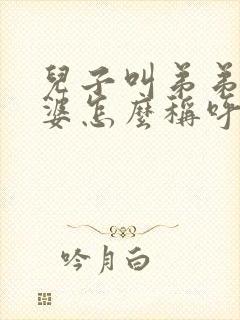 兒子叫弟弟
婆怎麼稱呼
吟月白